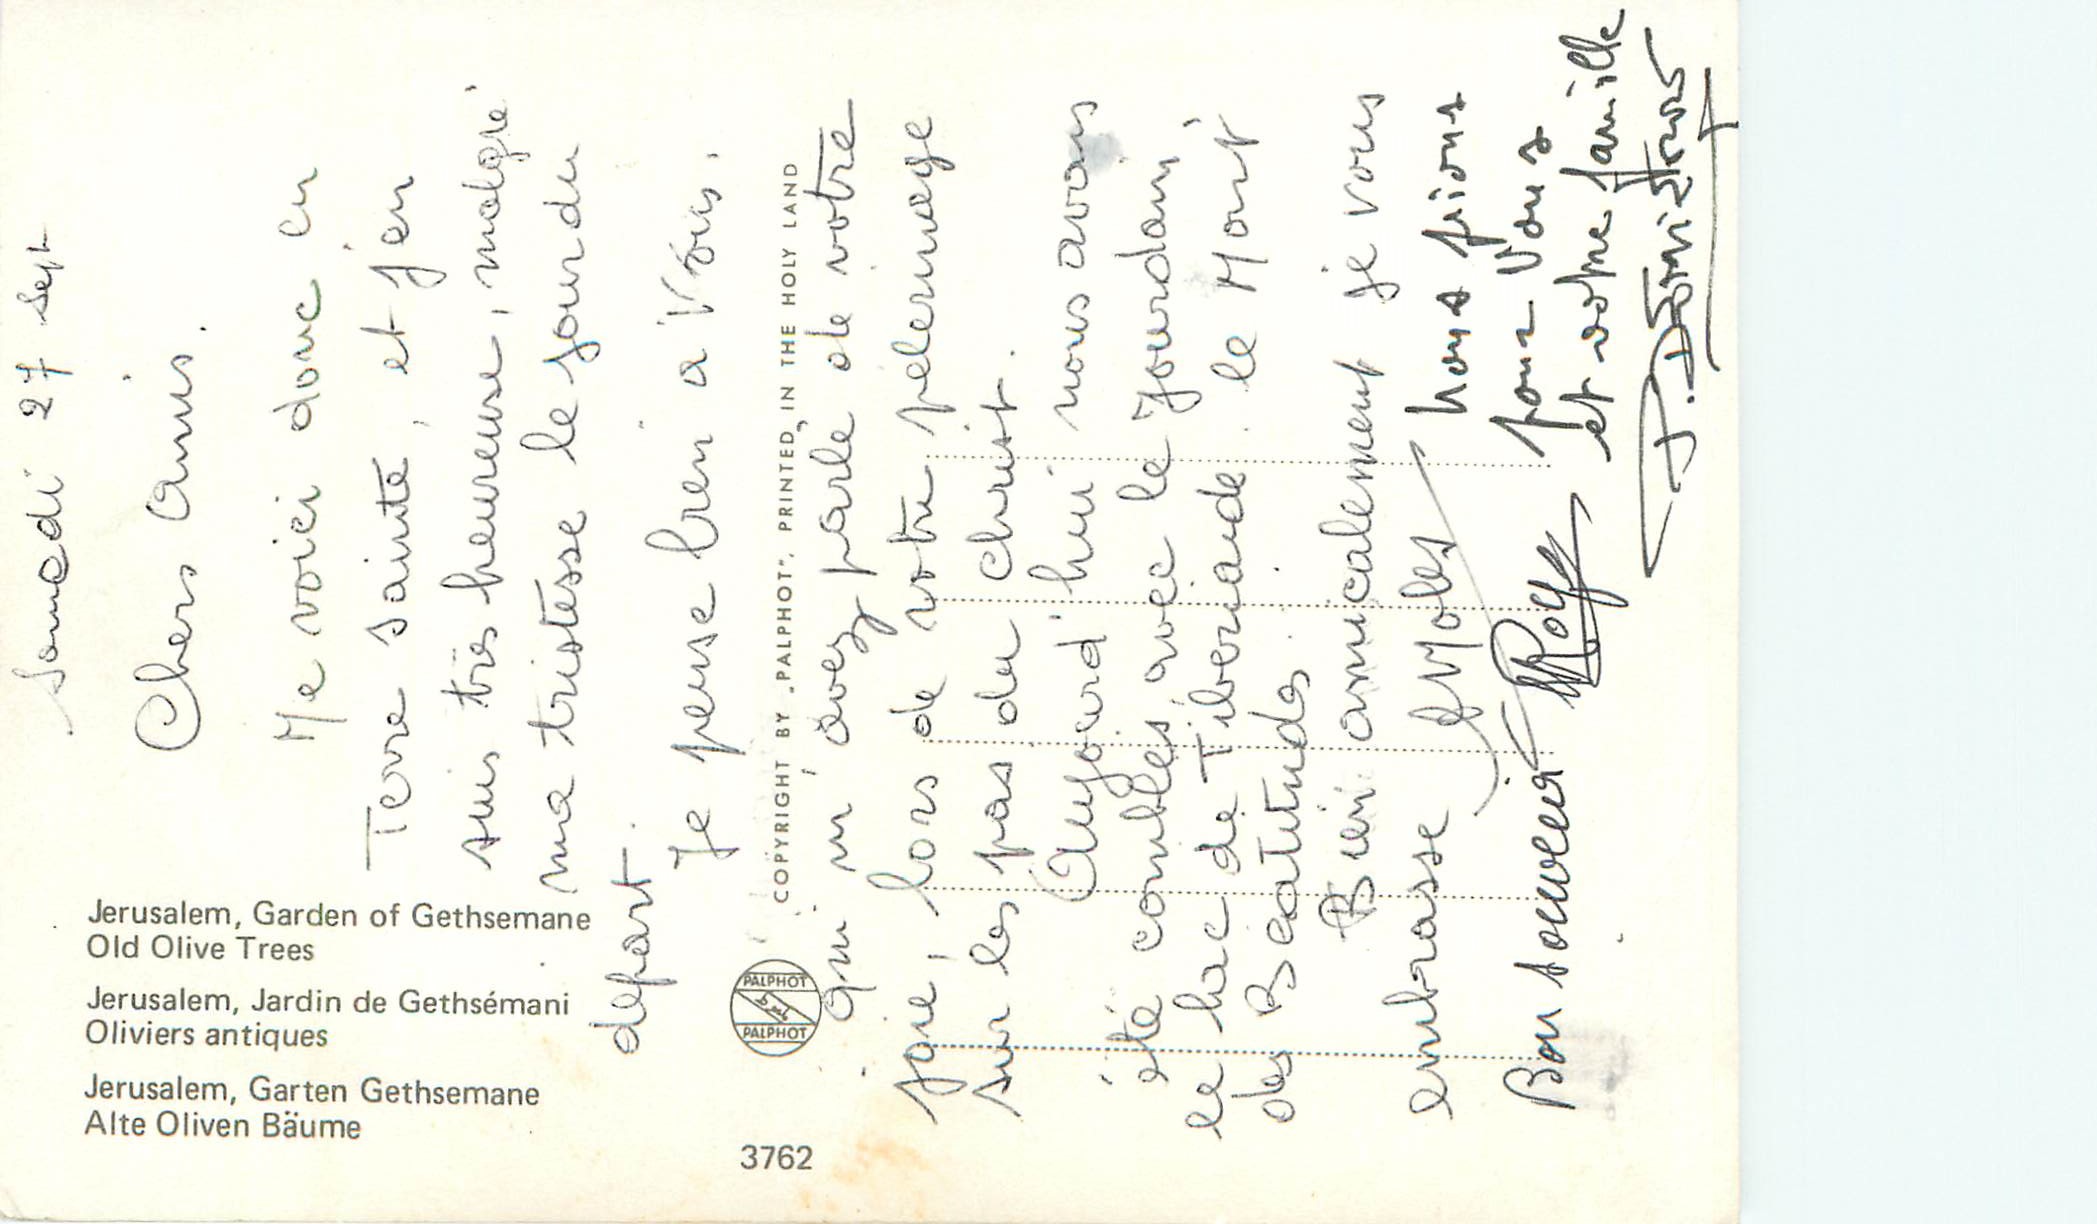 Jerusalem, Garden of Gethsemane
Old Olive Trees
Jerusalem, Jardin de Gethsémani
Oliviers antiques
Jerusalem, Garten Gethsemane
Alte Oliven Bäume
3762
COPYRIGHT BY „PALPHOT”, PRINTED IN THE HOLY LAND
PALPHOT
PALPHOT
Samedi 27 Sept
Chers Amis.
Me voici donc en
Terre sainte, et j'en
suis très heureuse, malgré
ma tristesse le jour du
départ.
Je pense bien à Vous.
qui m'avez parlé de votre
joie, lors de votre pélerinage
sur les pas du christ.
Aujourd'hui nous avons
été comblés, avec le Jourdain,
le Lac de Tiberiade. le Mont
des Beatitudes.
Bien amicalement je vous
embrasse
Bon souvenir
nous prions
pour Vous
et votre famille